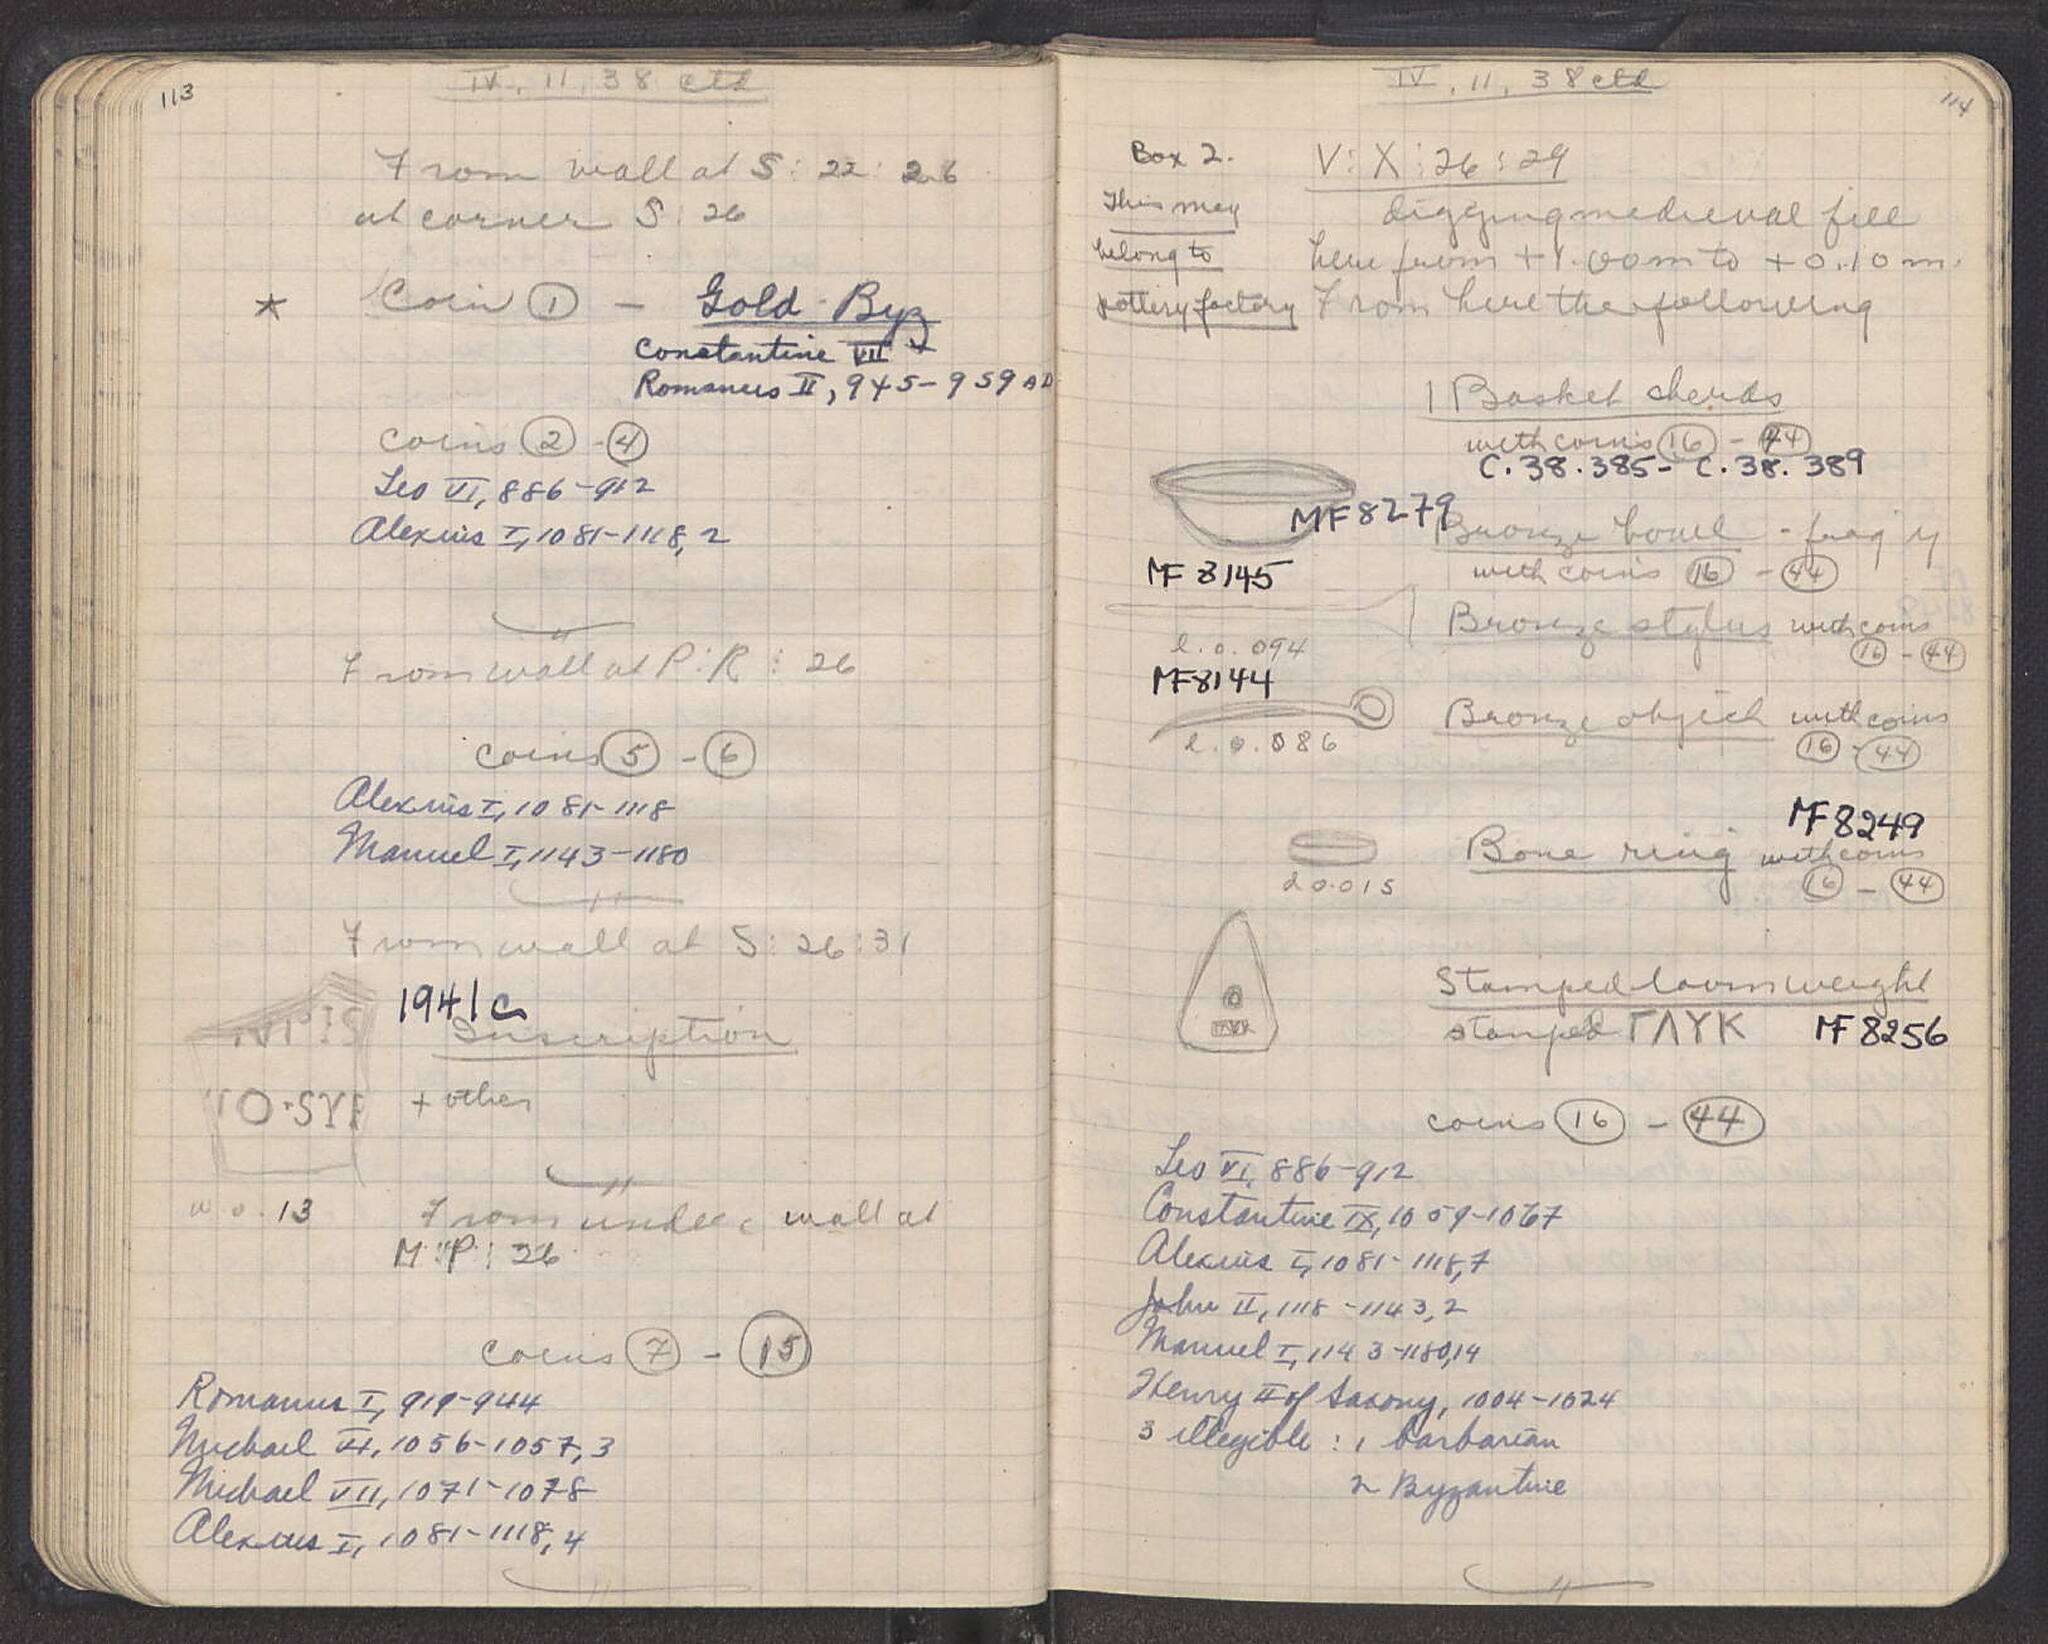 113
IV, 11, 38 ctd
From wall at S: 22: 26
at corner S: 26
* Coin 1 - Gold Byz
Constantine VII +
Romanus II, 945-959 AD
coins 2 - 4
Leo VI, 886-912
Alexius I, 1081-1118, 2
From wall at P:R: 26
coins 5 - 6
Alexius I, 1081-1118
Manuel I, 1143-1180
From wall at S: 26:31
1941c
Inscription
+ other
w 0.13
From under wall at
M:P: 26
coins 7 - 15
Romanus I, 919-944
Michael VI, 1056-1057, 3
Michael VII, 1071-1078
Alexius I, 1081-1118, 4
114
IV, 11, 38 ctd
Box 2.
This may
belong to
pottery factory
V:X:26:29
digging medieval fill
here from +1.00m to +0.10m.
From here the following
1 Basket sherds
with coins 16 - 44
C.38.385- C.38.389
MF 8279
Bronze bowl - frag'y
with coins 16 - 44
MF 8145
Bronze stylus with coins
16 - 44
l. 0.094
MF 8144
Bronze object with coins
16 - 44
l. 0.086
MF 8249
Bone ring with coins
16 - 44
d 0.015
Stamped loomweight
stamped ΓΛΥΚ MF 8256
coins 16 - 44
Leo VI, 886-912
Constantine IX, 1059-1067
Alexius I, 1081-1118, 7
John II, 1118-1143, 2
Manuel I, 1143-1180, 14
Henry II of Saxony, 1004-1024
3 illegible: 1 barbarian
2 Byzantine